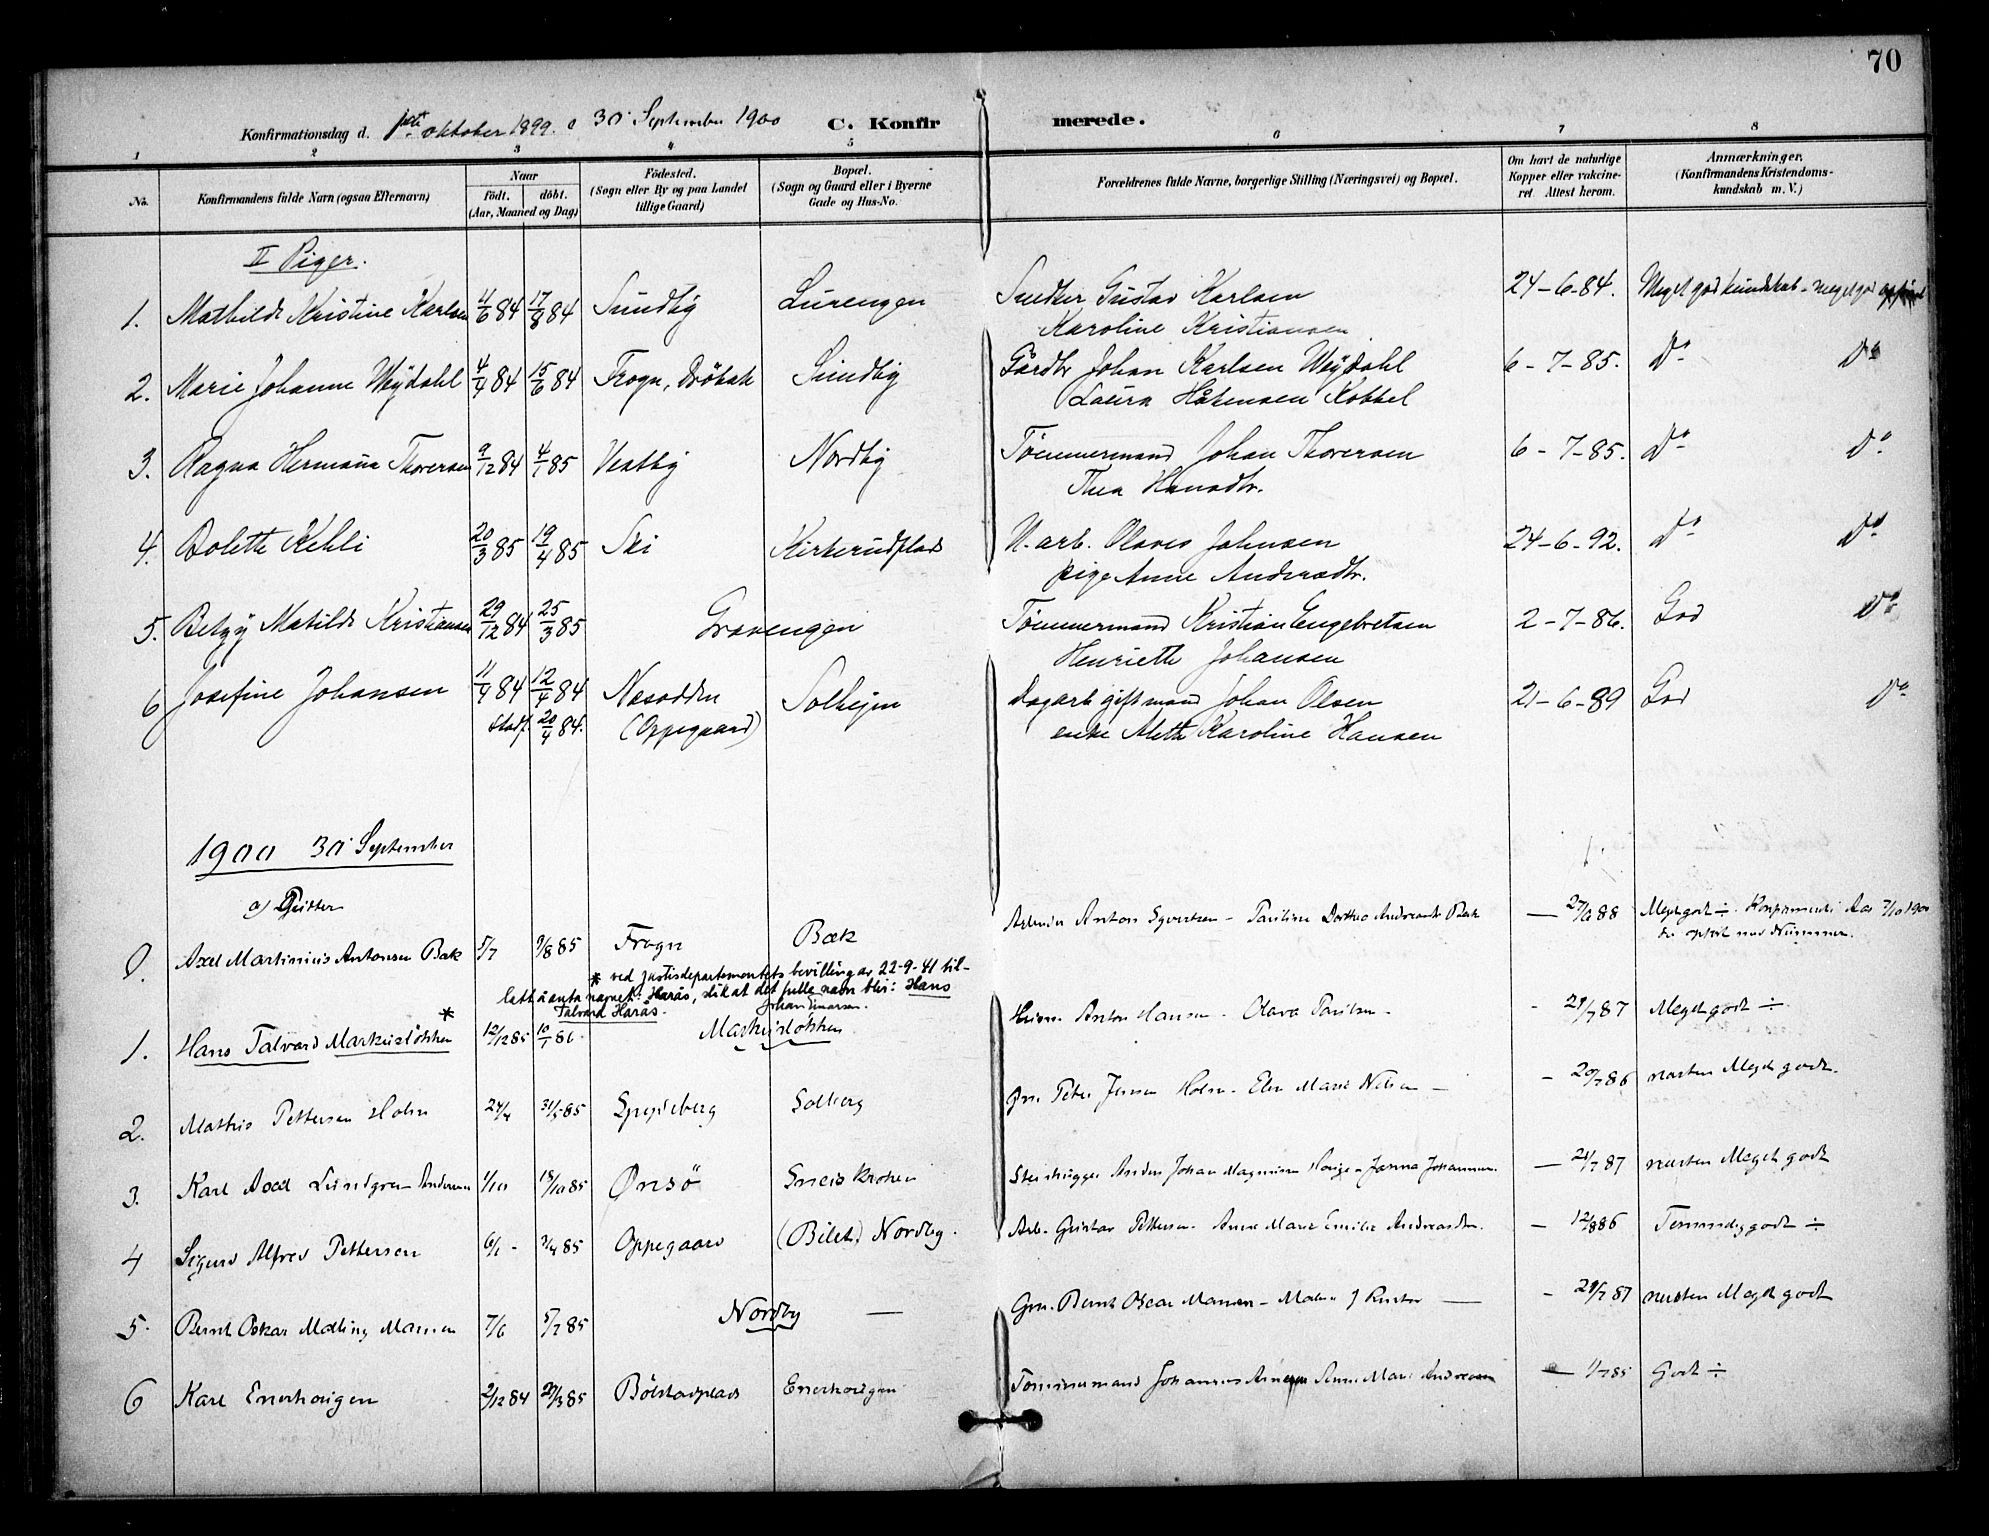 70
Konfirmationsdag d. 1ste oktober 1899. o 30 September 1900 C. Konfirmerede.
1 2 3 4 5 6 7 8
No.
Konfirmandens fulde Navn (ogsaa Efternavn)
Naar
födt. döbt.
(Aar, Maaned og Dag)
Födested.
(Sogn eller By og paa Landet
tillige Gaard)
Bopæl.
(Sogn og Gaard eller i Byerne
Gade og Hus-No.
Forældrenes fulde Navne, borgerlige Stilling (Næringsvei) og Bopæl.
Om havt de naturlige
Kopper eller vakcine-
ret. Attest herom.
Anmærkninger.
(Konfirmandens Kristendoms-
kundskab m. V.)
II Piger.
1. Mathilde Kristine Karlsen 11/6 84 17/8 84 Sundby Lurengen Snedker Gustav Karlsen 24-6-84. Meget god kundskab - meget god
Karoline Kristiansen
2. Marie Johanne Weydahl 4/4 84 15/6 84 Frogn, Dröbak Sundby Gårdbr Johan Karlsen Weydahl 6-7-85. Do Do
Laura Håkensen Kobbel
3. Ragna Hermana Thoversen 9/12 84 4/1 85 Vestby Nordby Tömmermand Johan Thoversen 6-7-85. Do Do
Thea Hansdtr.
4. Bolette Kehli 20/3 85 19/4 85 Ski Kirkerudplads U. arb. Olaves Johnsen 24-6-92. Do Do
pige Anne Andersdtr.
5. Betzy Matilde Kristiansen 29/12 84 25/3 85 Gravengen Tömmermand Kristian Engebretsen 2-7-86. God Do
Henriette Johansen
6 Josefine Johansen 11/4 84 12/4 84 Nesodden Solhejm Dagarb. gift mand Johan Olsen 21-6-89 God Do
stadf. 20/4 84. (Oppegaard) enke Alette Karoline Hansen
1900 30 September
a) Gutter
0. Axel Martinius Antonsen Bæk 5/7 9/8 85 Frogn Bæk Arbeider Anton Syvertsen - Pauline Dorthea Andreasdtr Bæk — 27/ 88 Meget godt ÷ Konfirmeret i Aas 7/10 1900
* ved Justisdepartementets bevilling av 22-9-41 til-
latt å anta navnet: Harås, slik at det fulle navn blir: Hans
Talvard Harås. Johan Einarsen.
1. Hans Talvard Markuslökken * 12/12 85 10/1 86 Markuslökken Anton Hansen - Olava Paulsen - 29/7 87 Meget godt ÷
2. Mathis Pettersen Holm 24/4 31/5 85 Spydeberg Solberg Peter Jensen Holm - Elen Marie Nilsen — - 20/7 86 næsten Meget godt.
3. Karl Axel Lundgren Andersen 1/10 18/10 85 Onsö Sneiskroken Stenhugger Anders Johan Magnusen Hauge - Johanna Johannesen — 21/7 87 næsten Meget godt
4 Sigurd Alfred Pettersen 6/1 - 3/4 85 Oppegaard (Bilet) Nordby. Arb. Gustav Pettersen. Anne Marie Emilie Andreasdtr. - 12/8 86 Temmelig godt ÷
5. Bernt Oskar Malling Mansen 7/6 5/7 85 Nordby — Grm. Bernt Oscar Mansen - — - 29/7 87 næsten Meget godt
6 Karl Enerhaugen 2/12 84 29/3 85 Bölstadplads Enerhaugen Tömmermand Johannes Arnesen Anne Marie Andersen — 1/7 85 Godt ÷